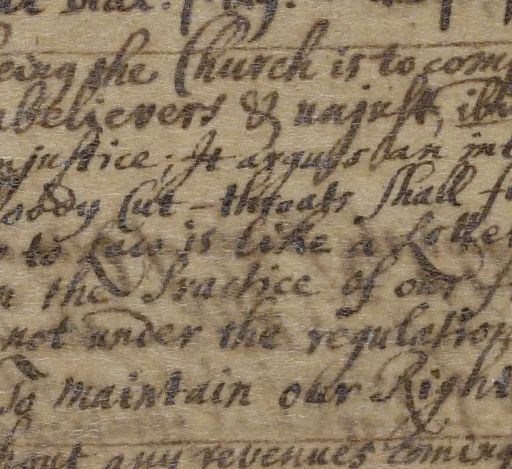 the Church is to com
believers & unjust, ibi
justice; It argues an int
oody Cut-throats shall f
to Law is like a
n the Practice of our
not under the regulation
to maintain our Right
hout any revenues coming